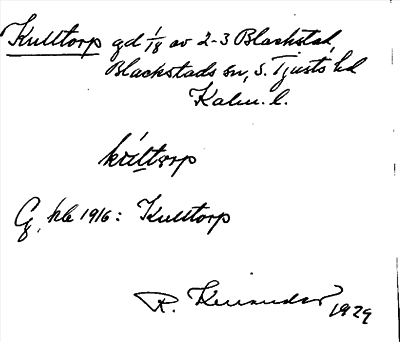 Kulltorp gd 1/18 av 2-3 Blackstad,
Blackstads sn, S. Tjusts hd
Kalm. l.
kúltorp
G, kb 1916: Kulltorp
R. 1929